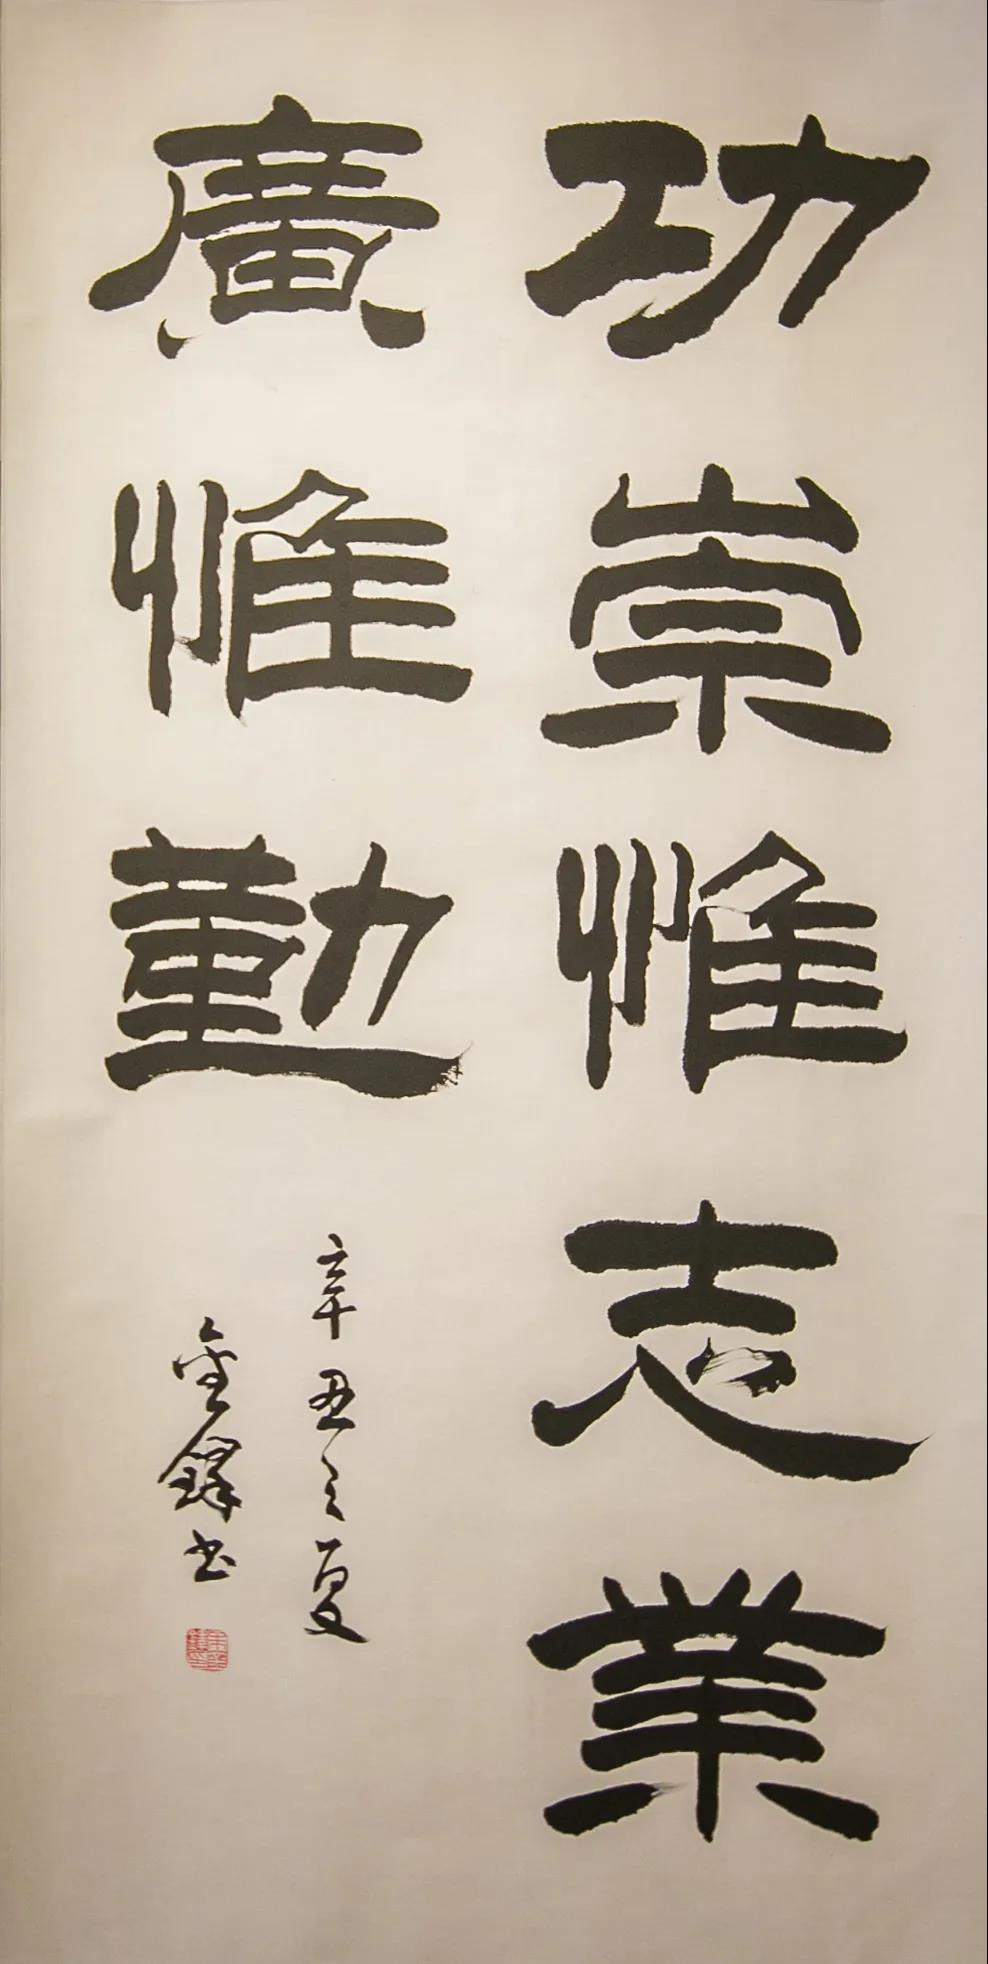 功崇惟志業
廣惟勤
辛丑之夏
金鐸书